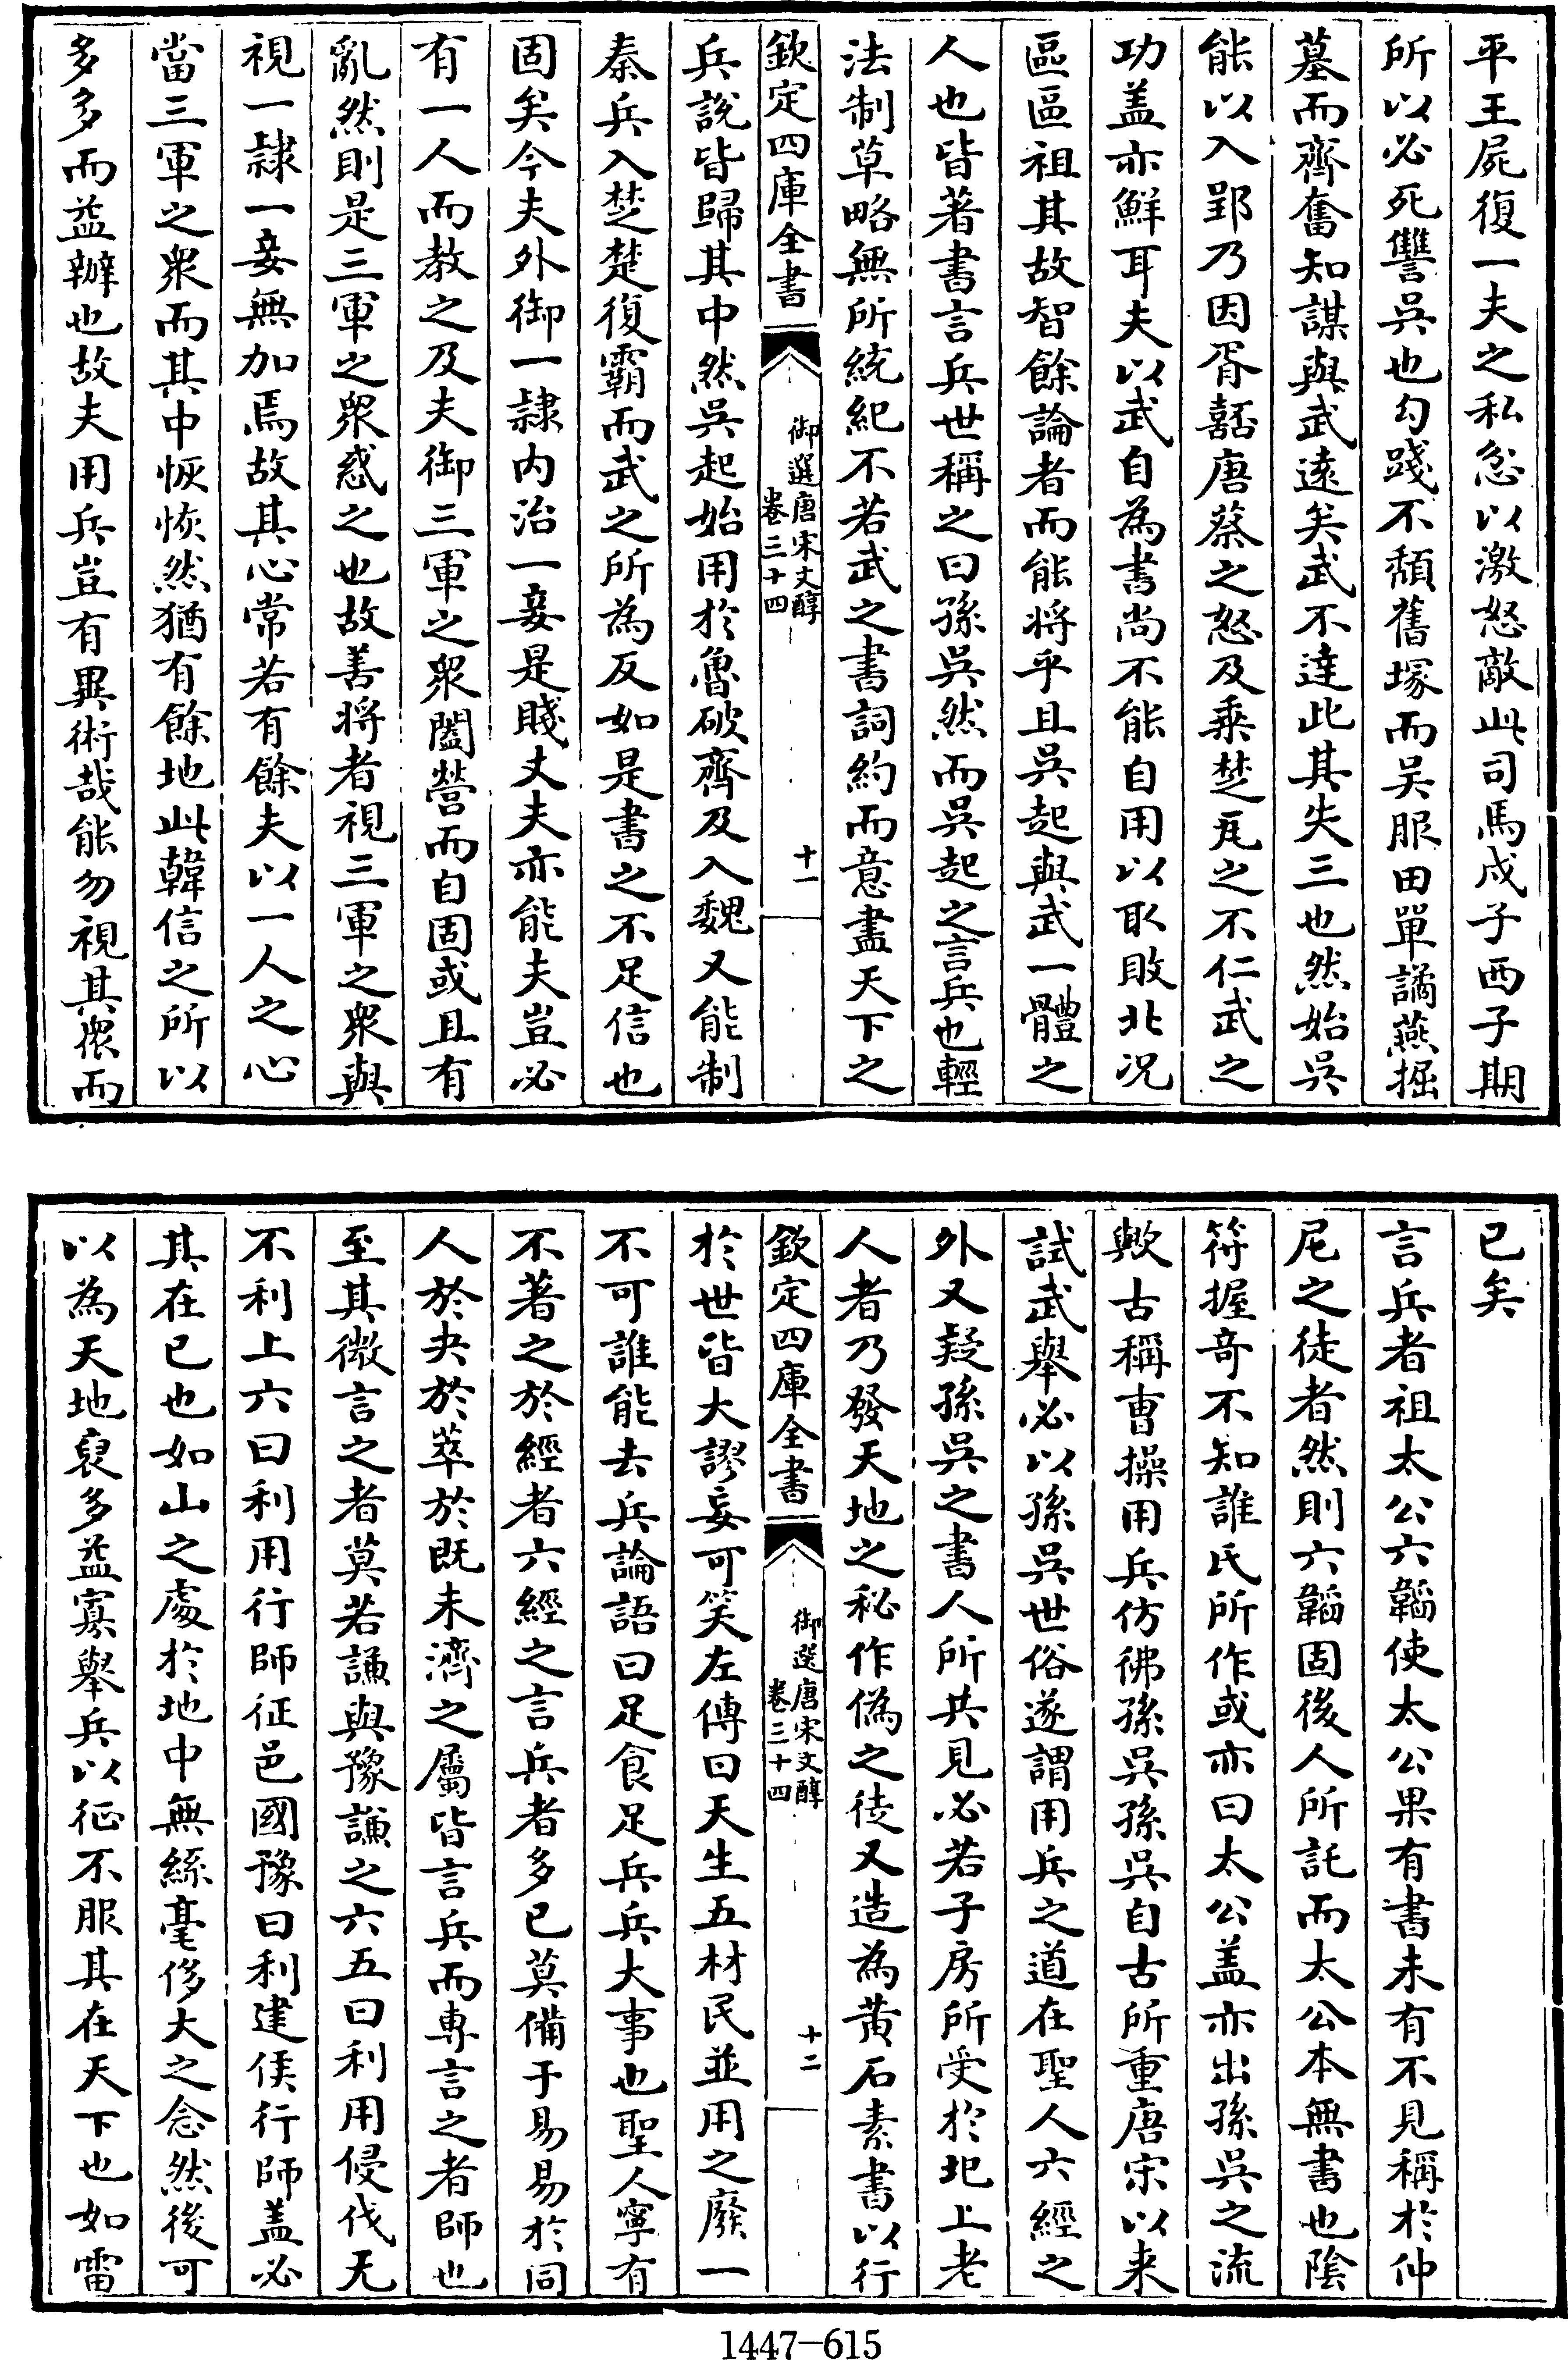 平王屍復一夫之私忿以激怒敵此司馬戍子西子期
所以必死讐吳也勾踐不頹舊塚而吳服田單譎燕掘
墓而齊奮知謀與武遠矣武不達此其失三也然始吳
能以入郢乃因胥嚭唐蔡之怒及乗楚瓦之不仁武之
功盖亦鮮耳夫以武自為書尚不能自用以取敗北况
區區祖其故智餘論者而能將乎且吳起與武一體之
人也皆著書言兵世稱之曰孫吳然而吳起之言兵也輕
法制草略無所統紀不若武之書詞約而意盡天下之
欽定四庫全書
御選唐宋文醇
卷三十四
十一
兵説皆歸其中然吳起始用於魯破齊及入魏又能制
秦兵入楚楚復霸而武之所為反如是書之不足信也
固矣今夫外御一隸内治一妾是賤丈夫亦能夫豈必
有一人而教之及夫御三軍之衆闔營而自固或且有
亂然則是三軍之衆惑之也故善將者視三軍之衆與
視一隸一妾無加焉故其心常若有餘夫以一人之心
當三軍之衆而其中恢恢然猶有餘地此韓信之所以
多多而益辦也故夫用兵豈有異術哉能勿視其衆而
已矣
言兵者祖太公六韜使太公果有書未有不見稱於仲
尼之徒者然則六韜固後人所託而太公本無書也陰
符握奇不知誰氏所作或亦曰太公盖亦出孫吳之流
歟古稱曹操用兵仿彿孫吳孫吳自古所重唐宋以来
試武舉必以孫吳世俗遂謂用兵之道在聖人六經之
外又疑孫吳之書人所共見必若子房所受於圯上老
人者乃發天地之秘作僞之徒又造為黄石素書以行
欽定四庫全書
御選唐宋文醇
卷三十四
十二
於世皆大謬妄可笑左傳曰天生五材民並用之廢一
不可誰能去兵論語曰足食足兵兵大事也聖人寧有
不著之於經者六經之言兵者多已莫備于易易於同
人於夬於萃於既未濟之屬皆言兵而専言之者師也
至其微言之者莫若謙與豫謙之六五曰利用侵伐无
不利上六曰利用行師征邑國豫曰利建侯行師盖必
其在已也如山之處於地中無絲毫侈大之念然後可
以為天地裒多益寡舉兵以征不服其在天下也如雷
1447—615